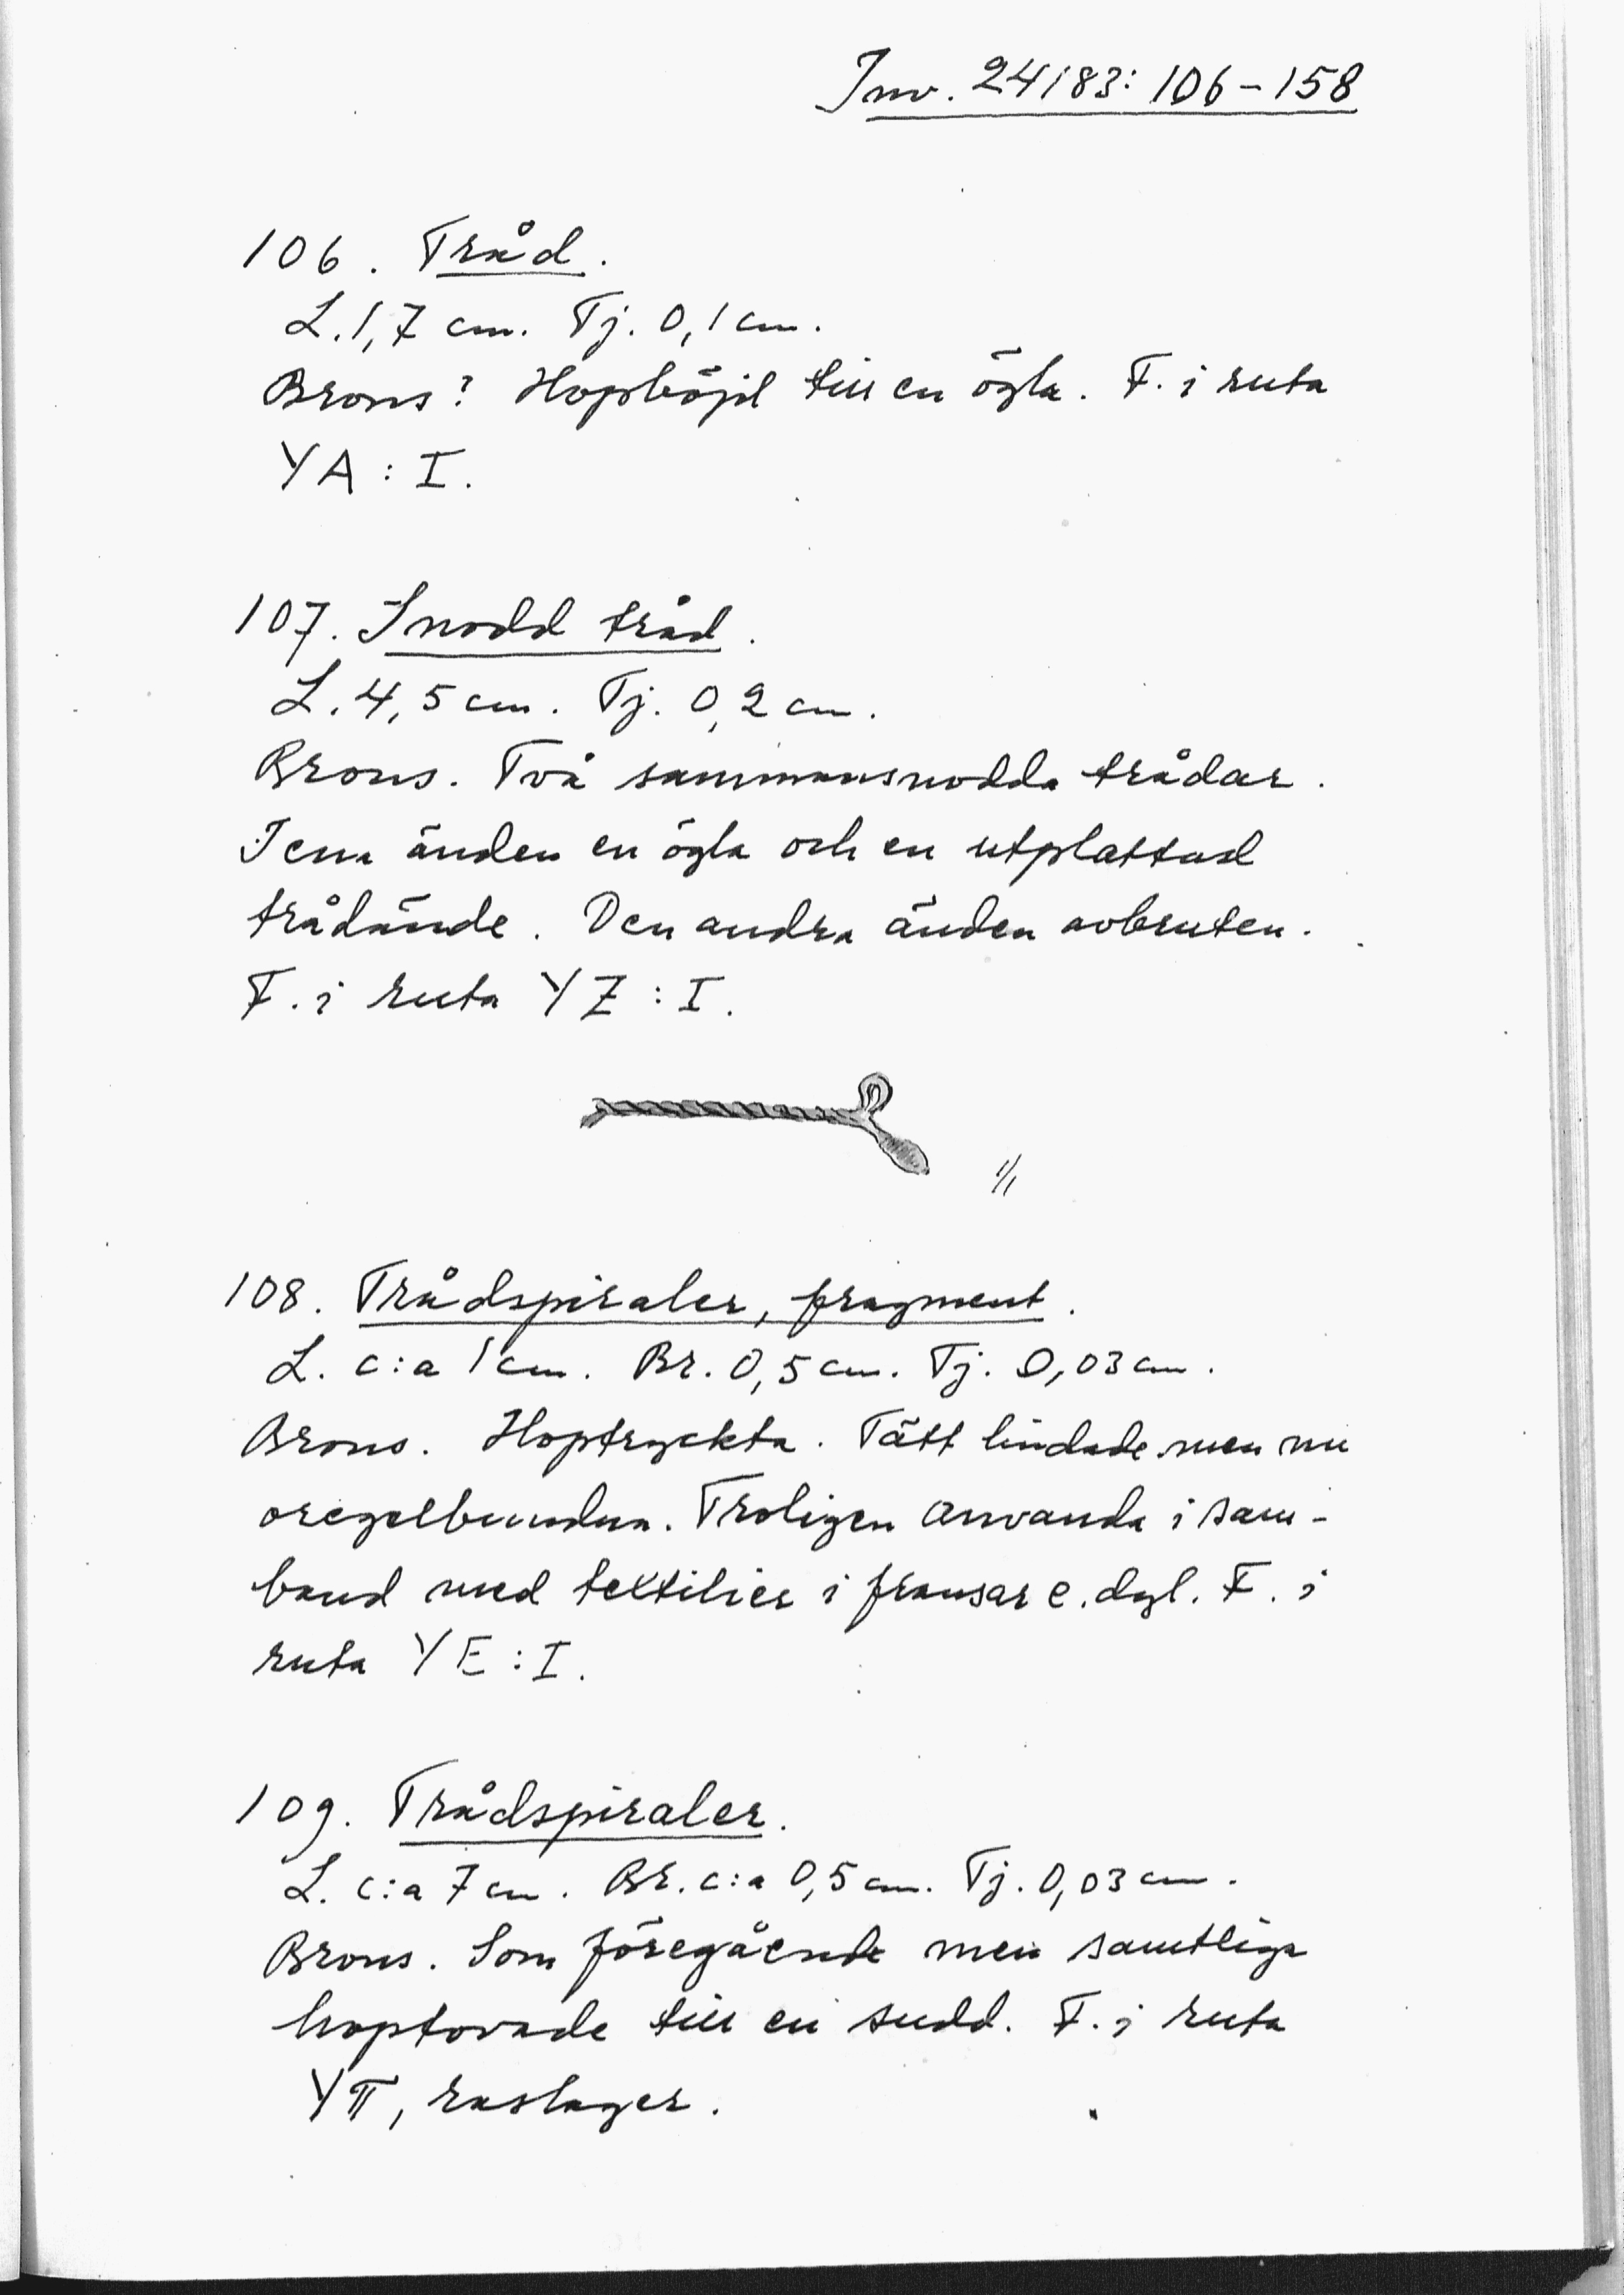 Inv. 24183: 106-158
106. Tråd.
L. 1,7 cm. Tj. 0,1 cm.
Brons? Hopböjd till en ögla. F. i ruta
YA: I.
107. Snodd tråd.
L. 4,5 cm. Tj. 0,2 cm.
Brons. Två sammansnodda trådar.
I ena änden en ögla och en utplattad
trådände. Den andra änden avbruten.
F. i ruta YZ: I.
1/1
108. Trådspiraler, fragment.
L. c:a 1 cm. Br. 0,5 cm. Tj. 0,03 cm.
Brons. Hoptryckta. Tätt lindade men nu
oregelbundna. Troligen använda i sam-
band med textilier i fransar e. dyl. F. i
ruta YE: I.
109. Trådspiraler.
L. c:a 7 cm. Br. c:a 0,5 cm. Tj. 0,03 cm.
Brons. Som föregående men samtliga
hoptovade till en sudd. F. i ruta
YTT, raslager.